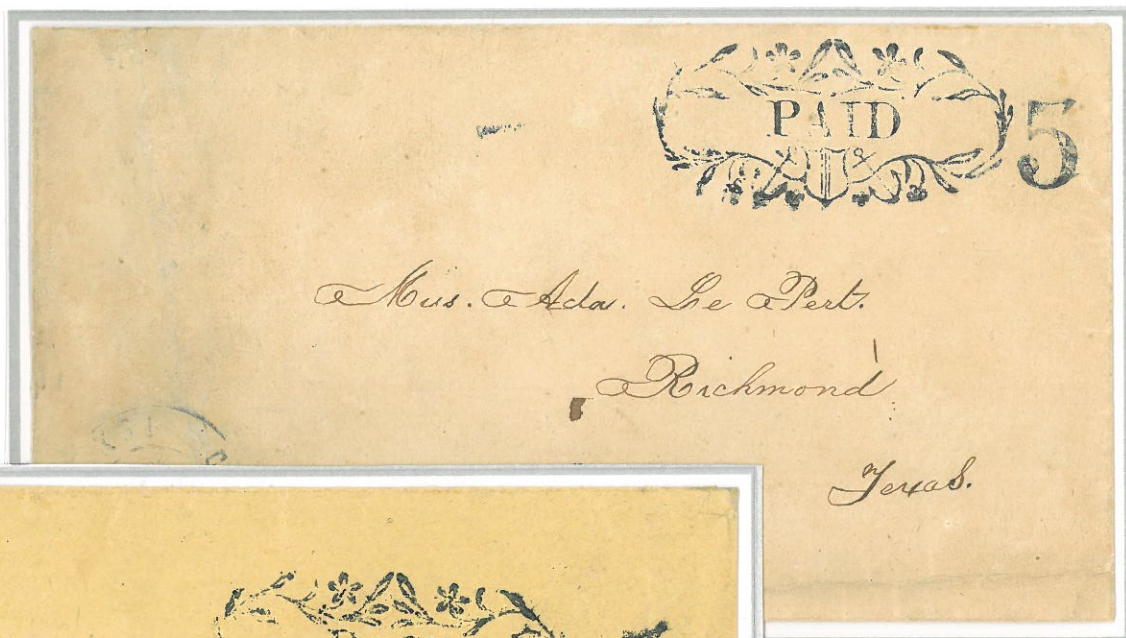 PAID 5
Mrs. Ada. Le Pert.
Richmond
Texas.